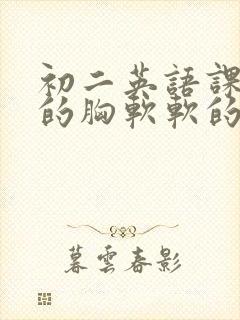 初二英語課
的胸軟軟的
暮雲春影